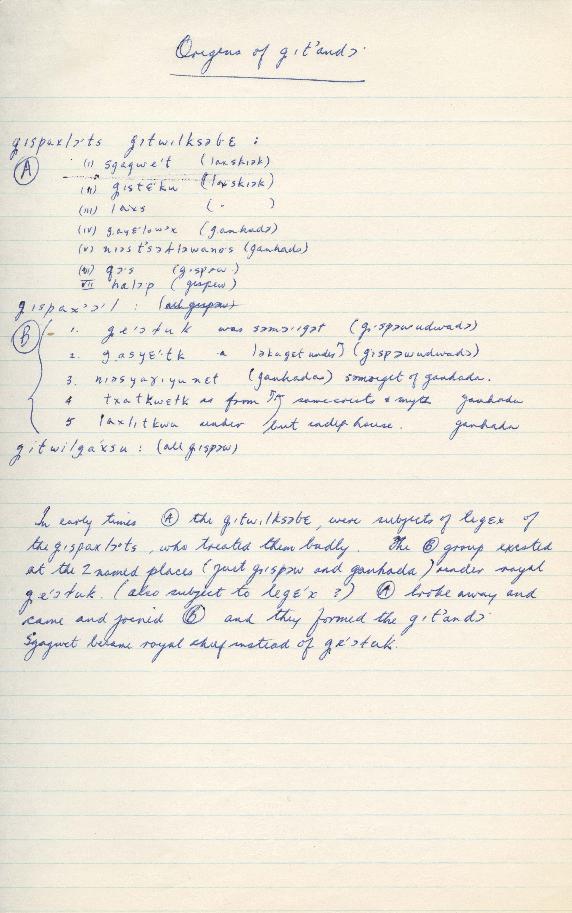 Origens of gıt'andɔ·
gıspaxlɔ'ts gıtwılksəbɛ :
Ⓐ
(i) sgagwe't (laxskiək)
(ii) gıstɛku (laxskiək)
(iii) laıxs ( " )
(iv) gayɛlowəx (ganhadə)
(v) nıəst'səɬləwanos (ganhadə)
(vi) qə's (gıspəw.)
VII haləp (gıspəw)
gıspaxɔ'əl : (all gıspəw)
Ⓑ
1. ge'ɔtuk was səməıgət (gıspəwudwadə)
2. gasyɛ'tk a ləkaget under 1 (gıspəwudwadə)
3. nıəsyaɣıyunɛt (ganhada) səmoıget of ganhada.
4 txatkwɛtk as from same crests & myth ganhada
5 laxlıtkwu under but indep house. ganhada
gıtwılga'xsu : (all gıspəw)
In early times Ⓐ the gıtwılksəbɛ, were subjects of legɛx of
the gıspaxlɔ'ts, who treated them badly. The Ⓑ group existed
at the 2 named places (just gıspəw and ganhada) under royal
ge'ɔtuk. (also subject to legɛ'x ?) Ⓐ broke away and
came and joined Ⓑ and they formed the gıt'andɔ·
Sgagwet became royal chief instead of ge'ɔtuk.